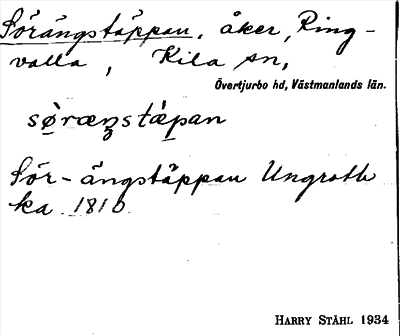 Sörängstäppan, åker, Ring-
valla, Kila sn,
Övertjurbo hd, Västmanlands län.
sø̀ræŋstápan
Sör-ängstäppan Ungrothe
ka. 1810
HARRY STÅHL 1934